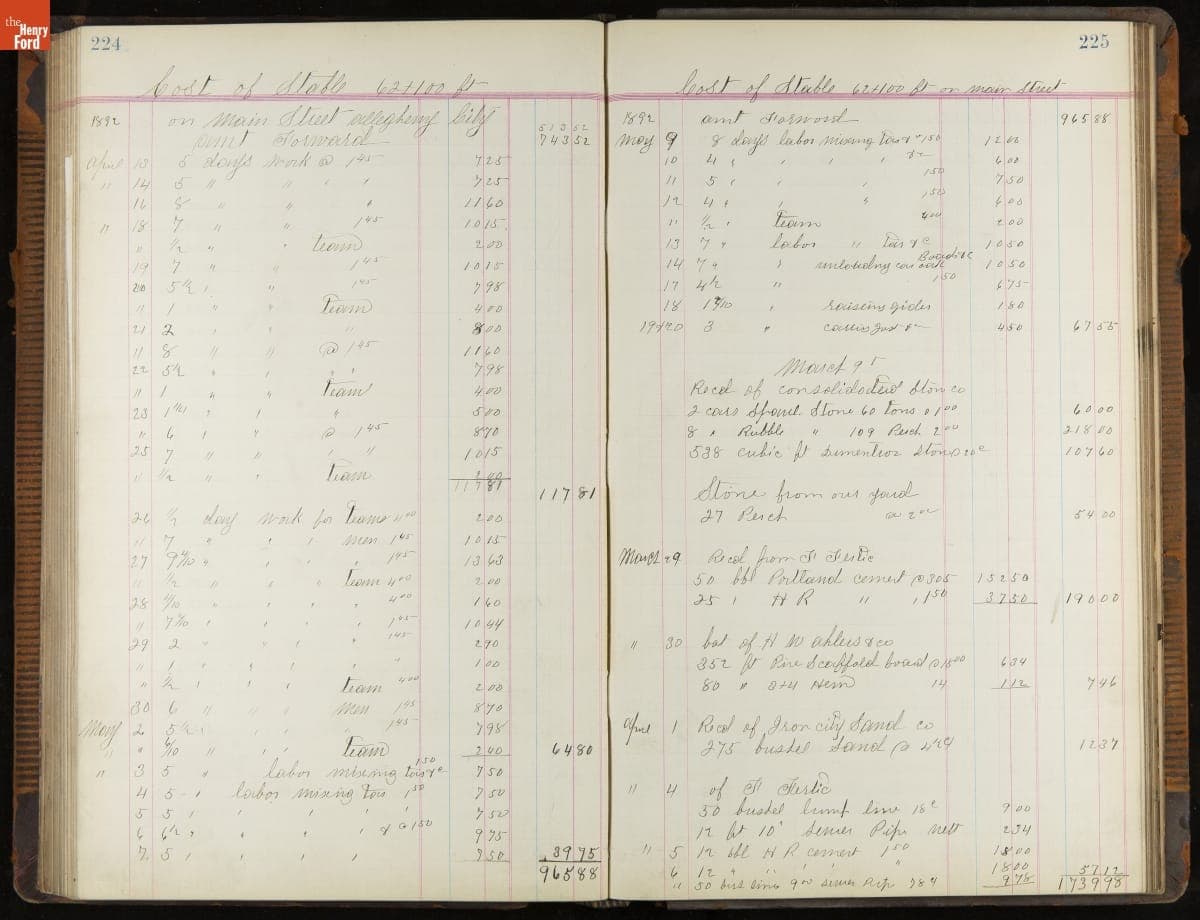 the Henry Ford
224
Cost of Stable 62+100 ft
1892 on Main Street allegheny City
5 13 52
amt Forward 743 52
April 13 5 days work @ 1 45 7 25
" 14 5 " " " " 7 25
16 8 " " " 11 60
" 18 7 " " 1 45 10 15
" 1/2 " " team 2 00
19 7 " " 1 45 10 15
20 5 1/2 " " 1 45 7 98
" 1 " " team 4 00
21 2 " " " 8 00
" 8 " " @ 1 45 11 60
22 5 1/2 " " " 7 98
" 1 " " team 4 00
23 " " " 5 00
" 6 " " @ 1 45 8 70
25 7 " " " " 10 15
" 1/2 " " team 2 00
117 81 117 81
26 1/2 day work for teams 4 00 2 00
" 7 " " " men 1 45 10 15
27 9 4/10 " " " 1 45 13 63
" 1/2 " " " team 4 00 2 00
28 4/10 " " " " 4 00 1 60
" 7 2/10 " " " " 1 45 10 44
29 2 " " " " 1 45 2 90
" 1 " " " " " 1 00
" 1/2 " " " team 4 00 2 00
30 6 " " " men 1 45 8 70
May 2 5 1/2 " " " " 1 45 7 98
" " 6/10 " " " team 2 40 64 80
" 3 5 " labor mixing tar &c 1 50 7 50
4 5 " labor mixing tar 1 50 7 50
5 5 " " " " 7 50
6 6 1/2 " " " " &c 1 50 9 75
7 5 " " " " 7 50 39 75
965 88
225
Cost of Stable 62+100 ft on main Street
1892 amt Forward 965 88
May 9 8 days labor mixing tar &c 1 50 12 00
10 4 " " " " &c 6 00
11 5 " " " 1 50 7 50
12 4 " " " 1 50 6 00
" 1/2 " team 4 00 2 00
13 7 " labor " tar &c 10 50
14 7 " " unloading car Boards &c 10 50
17 4 1/2 " " 1 50 6 75
18 1 2/10 " raising gider 1 80
19&20 3 " 4 50 67 55
March 9th
Recd of consolidated Ston co
2 cars Spawl Stone 60 tons @ 1 00 60 00
8 " Rubble " 109 Perch 2 00 218 00
538 cubic ft Dimention Ston @ 20 c 107 60
Stone from our yard
27 Perch @ 2 00 54 00
March 29 Recd from F Fertic
50 bbl Portland cement @ 305 152 50
25 " H R " " 1 50 37 50 190 00
" 30 bot of H W ahlers & co
352 ft Pine Scaffold board @ 18 00 6 34
80 " 3+4 Hem 14 1 12 7 46
April 1 Recd of Iron city Sand co
275 bushel Sand @ 4 1/2 c 12 37
" 4 of F Fertic
50 bushel lump lime 18 c 9 00
12 ft 10" Sewer Pipe nett 2 34
" 5 12 bbl H R cement 1 50 18 00
6 12 " " " " 18 00 57 12
" 50 bus lime 9 00 sewer Pip 78 c 9 78 1739 98